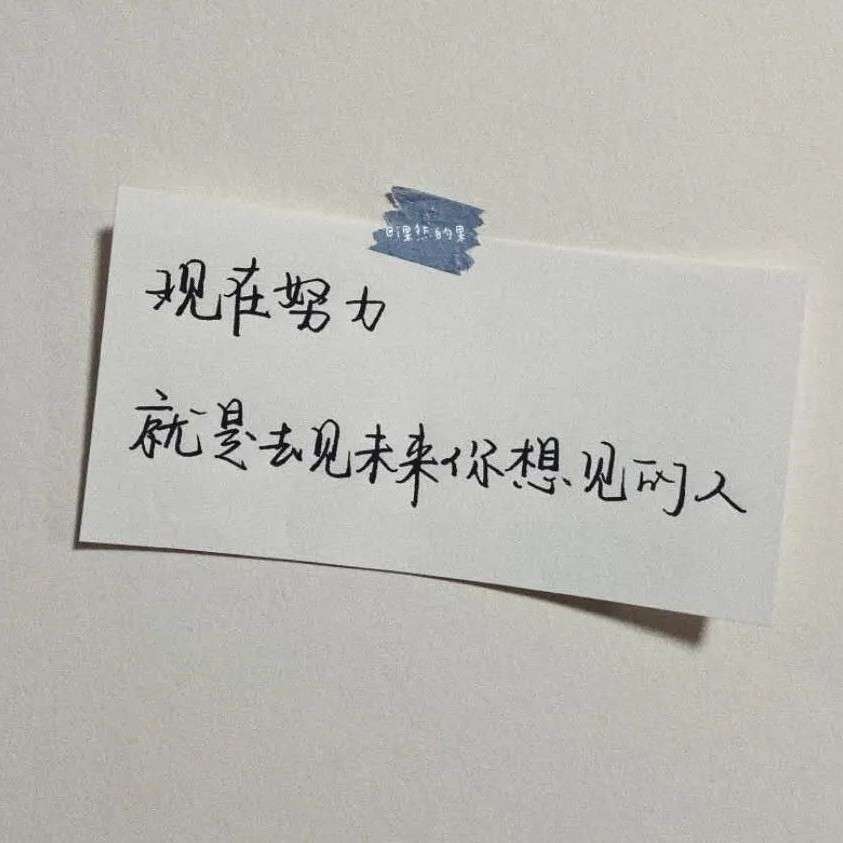 @课然的果
现在努力
就是去见未来你想见的人